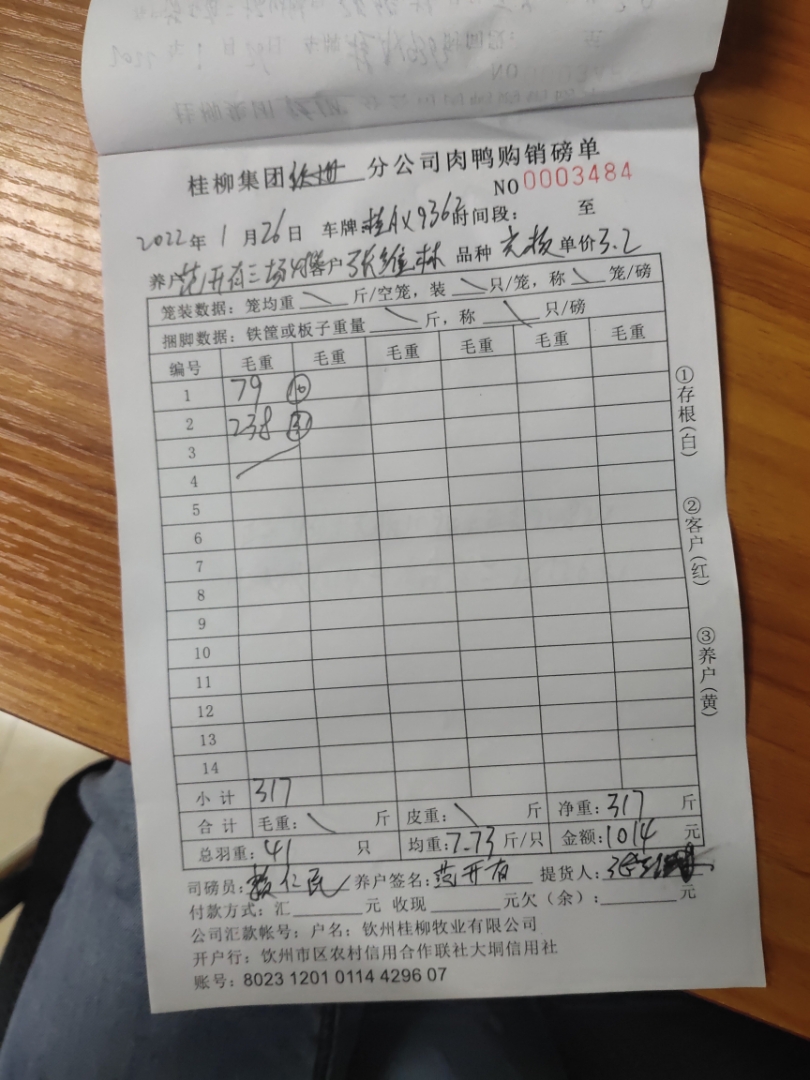 桂柳集团钦州分公司肉鸭购销磅单
NO 0003484
2022年1月26日 车牌桂AX9362时间段: 至
养户范开有三场 客户张维林 品种 单价3.2
笼装数据:笼均重\斤/空笼,装\只/笼,称\笼/磅
捆脚数据:铁筐或板子重量\斤,称\只/磅
编号 毛重 毛重 毛重 毛重 毛重 毛重
1 79 ⑩
2 238 ㉛
3
4
5
6
7
8
9
10
11
12
13
14
小计 317
合计 毛重:\斤 皮重:\斤 净重:317斤
总羽重:41只 均重:7.73斤/只 金额:1014元
司磅员:赖仁民 养户签名:范开有 提货人:
付款方式:汇____元 收现____元欠(余):____元
公司汇款帐号:户名:钦州桂柳牧业有限公司
开户行:钦州市区农村信用合作联社大垌信用社
账号:8023 1201 0114 4296 07
①存根(白)
②客户(红)
③养户(黄)